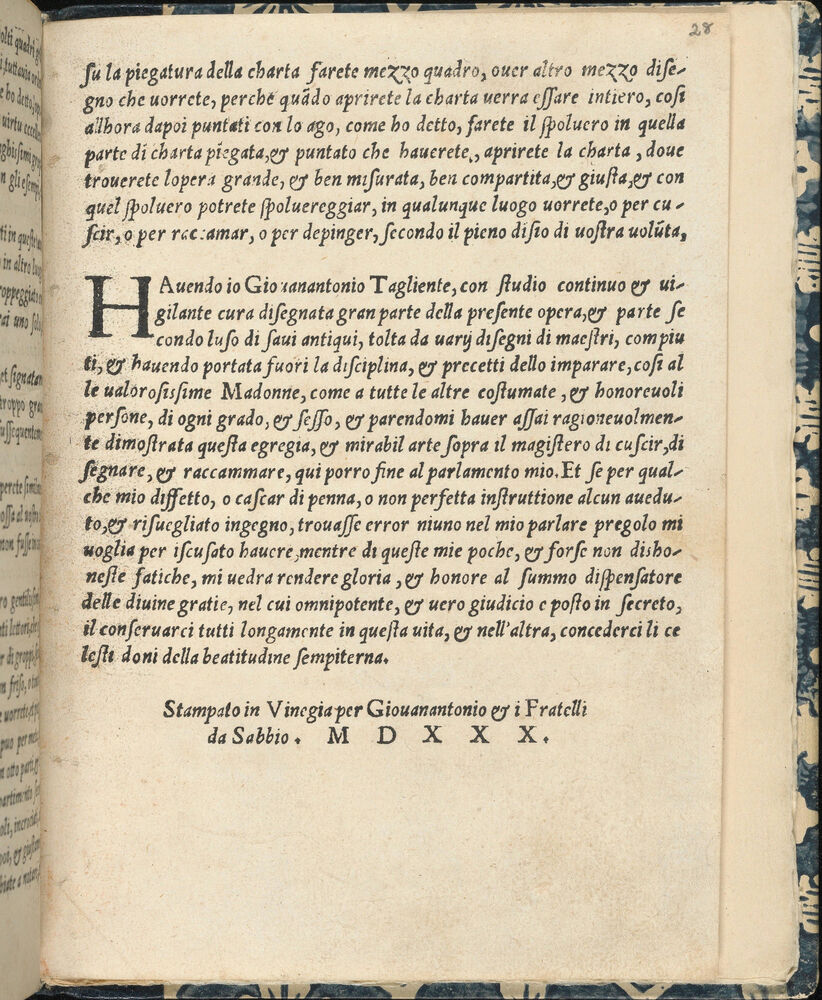 28
ſu la piegatura della charta farete mezzo quadro, ouer altro mezzo diſe-
gno che uorrete, perche quādo aprirete la charta uerra eſſare intiero, coſi
allhora dapoi puntati con lo ago, come ho detto, farete il ſpoluero in quella
parte di charta piegata,& puntato che hauerete,, aprirete la charta , doue
trouerete lopera grande, & ben miſurata, ben compartita,& giuſta,& con
quel ſpoluero potrete ſpoluereggiar, in qualunque luogo uorrete,o per cu -
ſcir, o per raccamar, o per depinger, ſecondo il pieno diſio di uoſtra uolūta,
HAuendo io Giouanantonio Tagliente, con ſtudio continuo & ui-
gilante cura diſegnata gran parte della preſente opera,& parte ſe
condo luſo di ſaui antiqui, tolta da uarij diſegni di maeſtri, compiu
ti, & hauendo portata fuori la diſciplina, & precetti dello imparare, coſi al
le ualoroſiſſime Madonne, come a tutte le altre coſtumate , & honoreuoli
perſone, di ogni grado, & ſeſſo, & parendomi hauer aſſai ragioneuolmen-
te dimoſtrata queſta egregia, & mirabil arte ſopra il magiſtero di cuſcir,di
ſegnare, & raccammare, qui porro fine al parlamento mio. Et ſe per qual-
che mio diffetto, o caſcar di penna, o non perfetta inſtruttione alcun auedu-
to,& riſuegliato ingegno, trouaſſe error niuno nel mio parlare pregolo mi
uoglia per iſcuſato hauere,mentre di queſte mie poche, & forſe non disho-
neſte fatiche, mi uedra rendere gloria , & honore al ſummo diſpenſatore
delle diuine gratie, nel cui omnipotente, & uero giudicio e poſto in ſecreto,
il conſeruarci tutti longamente in queſta uita, & nell'altra, concederci li ce
leſti doni della beatitudine ſempiterna.
Stampato in Vinegia per Giouanantonio & i Fratelli
da Sabbio. M D X X X.